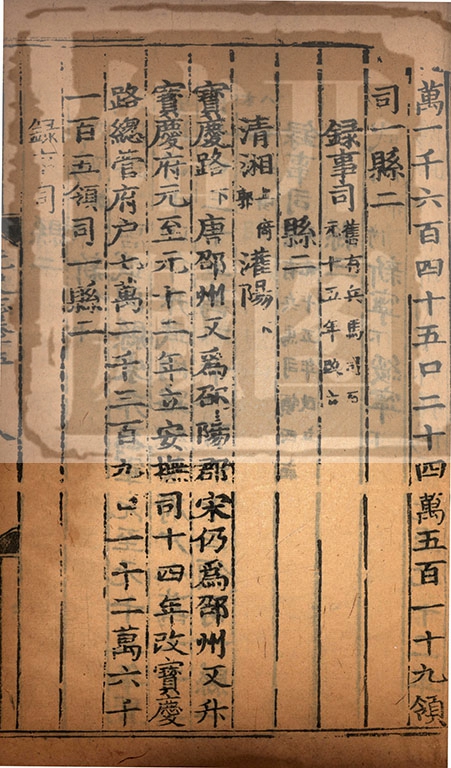 萬一千六百四十五口二十四萬五百一十九領
司一縣二
録事司舊有兵馬司
元十五年改
縣二
清湘上倚郭灌陽下
寶慶路下唐邵州又爲邵陽郡宋仍爲邵州又升
寶慶府元至元十二年立安撫司十四年改寶慶
路總管府户七萬二千三百九口一十二萬六千
一百五領司一縣二
録事司